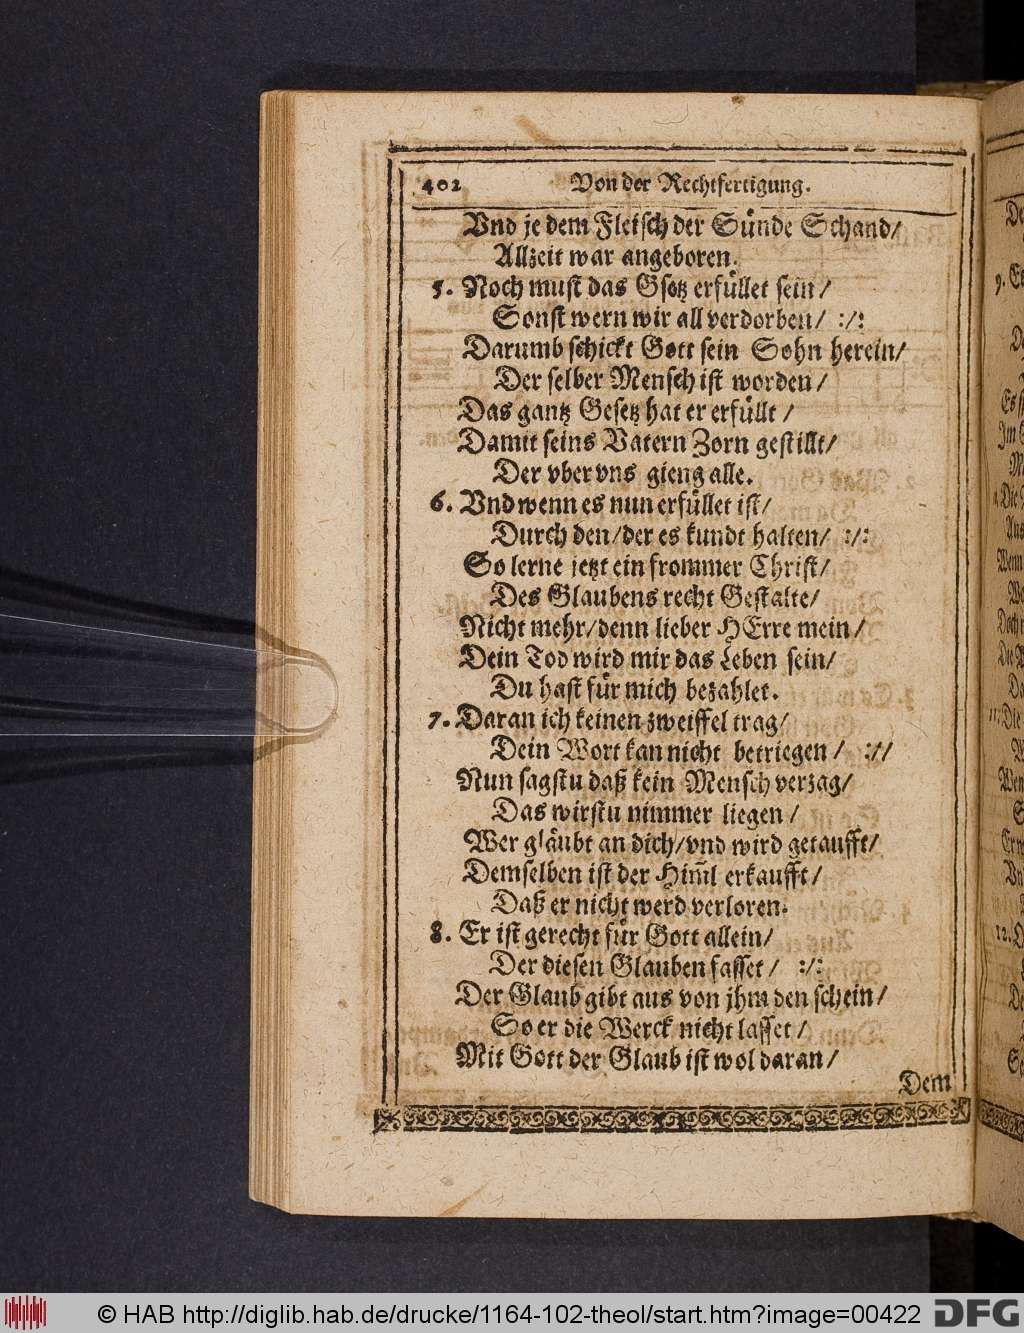 402 Von der Rechtfertigung.
Vnd je dem Fleisch der Sünde Schand/
Allzeit war angeboren.
5. Noch must das Gsetz erfüllet sein/
Sonst wern wir all verdorben/ :/:
Darumb schickt Gott sein Sohn herein/
Der selber Mensch ist worden/
Das gantz Gesetz hat er erfüllt/
Damit seins Vatern Zorn gestillt/
Der vber vns gieng alle.
6. Vnd wenn es nun erfüllet ist/
Durch den/der es kundt halten/ :/:
So lerne jetzt ein frommer Christ/
Des Glaubens recht Gestalte/
Nicht mehr/denn lieber HErre mein/
Dein Tod wird mir das Leben sein/
Du hast für mich bezahlet.
7. Daran ich keinen zweiffel trag/
Dein Wort kan nicht betriegen/ ://
Nun sagstu daß kein Mensch verzag/
Das wirstu nimmer liegen/
Wer gläubt an dich/vnd wird getaufft/
Demselben ist der Him̃l erkaufft/
Daß er nicht werd verloren.
8. Er ist gerecht für Gott allein/
Der diesen Glauben fasset/ :/:
Der Glaub gibt aus von jhm den schein/
So er die Werck nicht lasset/
Mit Gott der Glaub ist wol daran/
Dem
© HAB http://diglib.hab.de/drucke/1164-102-theol/start.htm?image=00422 DFG